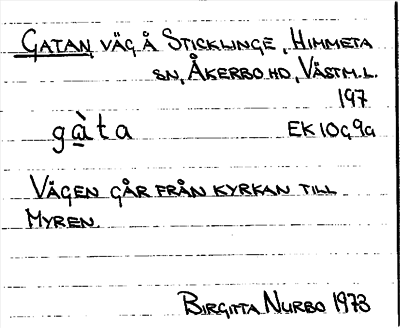 GATAN, VÄG Å STICKLINGE, HIMMETA
SN, ÅKERBO HD, VÄSTM. L.
197
gàta EK 10G9a
VÄGEN GÅR FRÅN KYRKAN TILL
MYREN.
BIRGITTA NURBO 1973